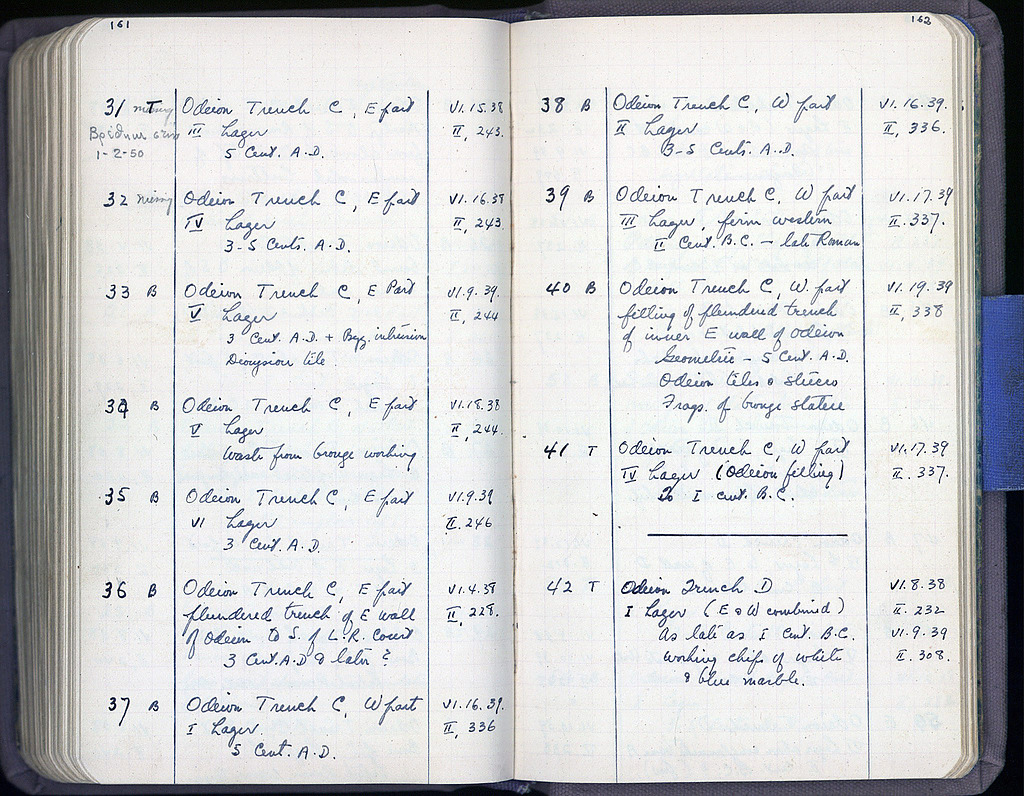 161
31 T missing Odeion Trench C, E part VI.15.38
III Lager II, 243.
1-2-50 5 Cent. A.D.
32 missing Odeion Trench C, E part VI.16.38
IV Lager II, 243
3-5 Cents. A.D.
33 B Odeion Trench C, E Part VI.9.39.
V Lager II, 244
3 Cent. A.D. + Byz. intrusion
Dionysion tile
34 B Odeion Trench C, E part VI.18.38
V Lager II, 244.
Waste from bronze working
35 B Odeion Trench C, E part VI.9.39
VI Lager II.246
3 Cent. A.D.
36 B Odeion Trench C, E part VI.4.38
plundered trench of E wall II, 228.
of Odeion to S. of L.R. Court
3 Cent. A.D & later?
37 B Odeion Trench C, W part VI.16.39.
I Lager. II, 336
5 Cent. A.D.
162
38 B Odeion Trench C, W part VI.16.39.
II Lager II, 336.
3-5 Cents. A.D.
39 B Odeion Trench C, W part VI.17.39
III Lager, firm western II.337.
II Cent. B.C. – late Roman
40 B Odeion Trench C, W. part VI.19.39
filling of plundered trench II, 338
of inner E wall of Odeion
Geometric – 5 Cent. A.D.
Odeion tiles & stucco
Frags. of bronze statue
41 T Odeion Trench C, W part VI.17.39
IV Lager (Odeion filling) II.337.
To I cent. B.C.
42 T Odeion Trench D VI.8.38
I Lager (E & W combined) II.232
As late as I Cent. B.C. VI.9.39
Working chips of white II.308.
& blue marble.